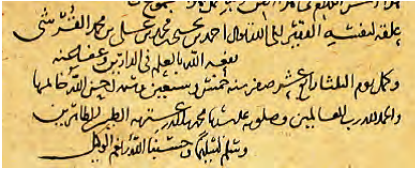 علقه لنفسه الفقير الى الله تعالى احمد بن يحيى بن محمد بن علي بن محمد القرشي
نفعه الله بالعلم في الدارين وعفا عنه
وكمل يوم الثلثا رابع عشر صفر سنة خمس وسبعين وستمائة احسن الله خاتمتها
والحمد لله رب العالمين وصلوته على سيدنا محمد واله وعترته الطيبين الطاهرين
وسلم تسليما وحسبنا الله ونعم الوكيل